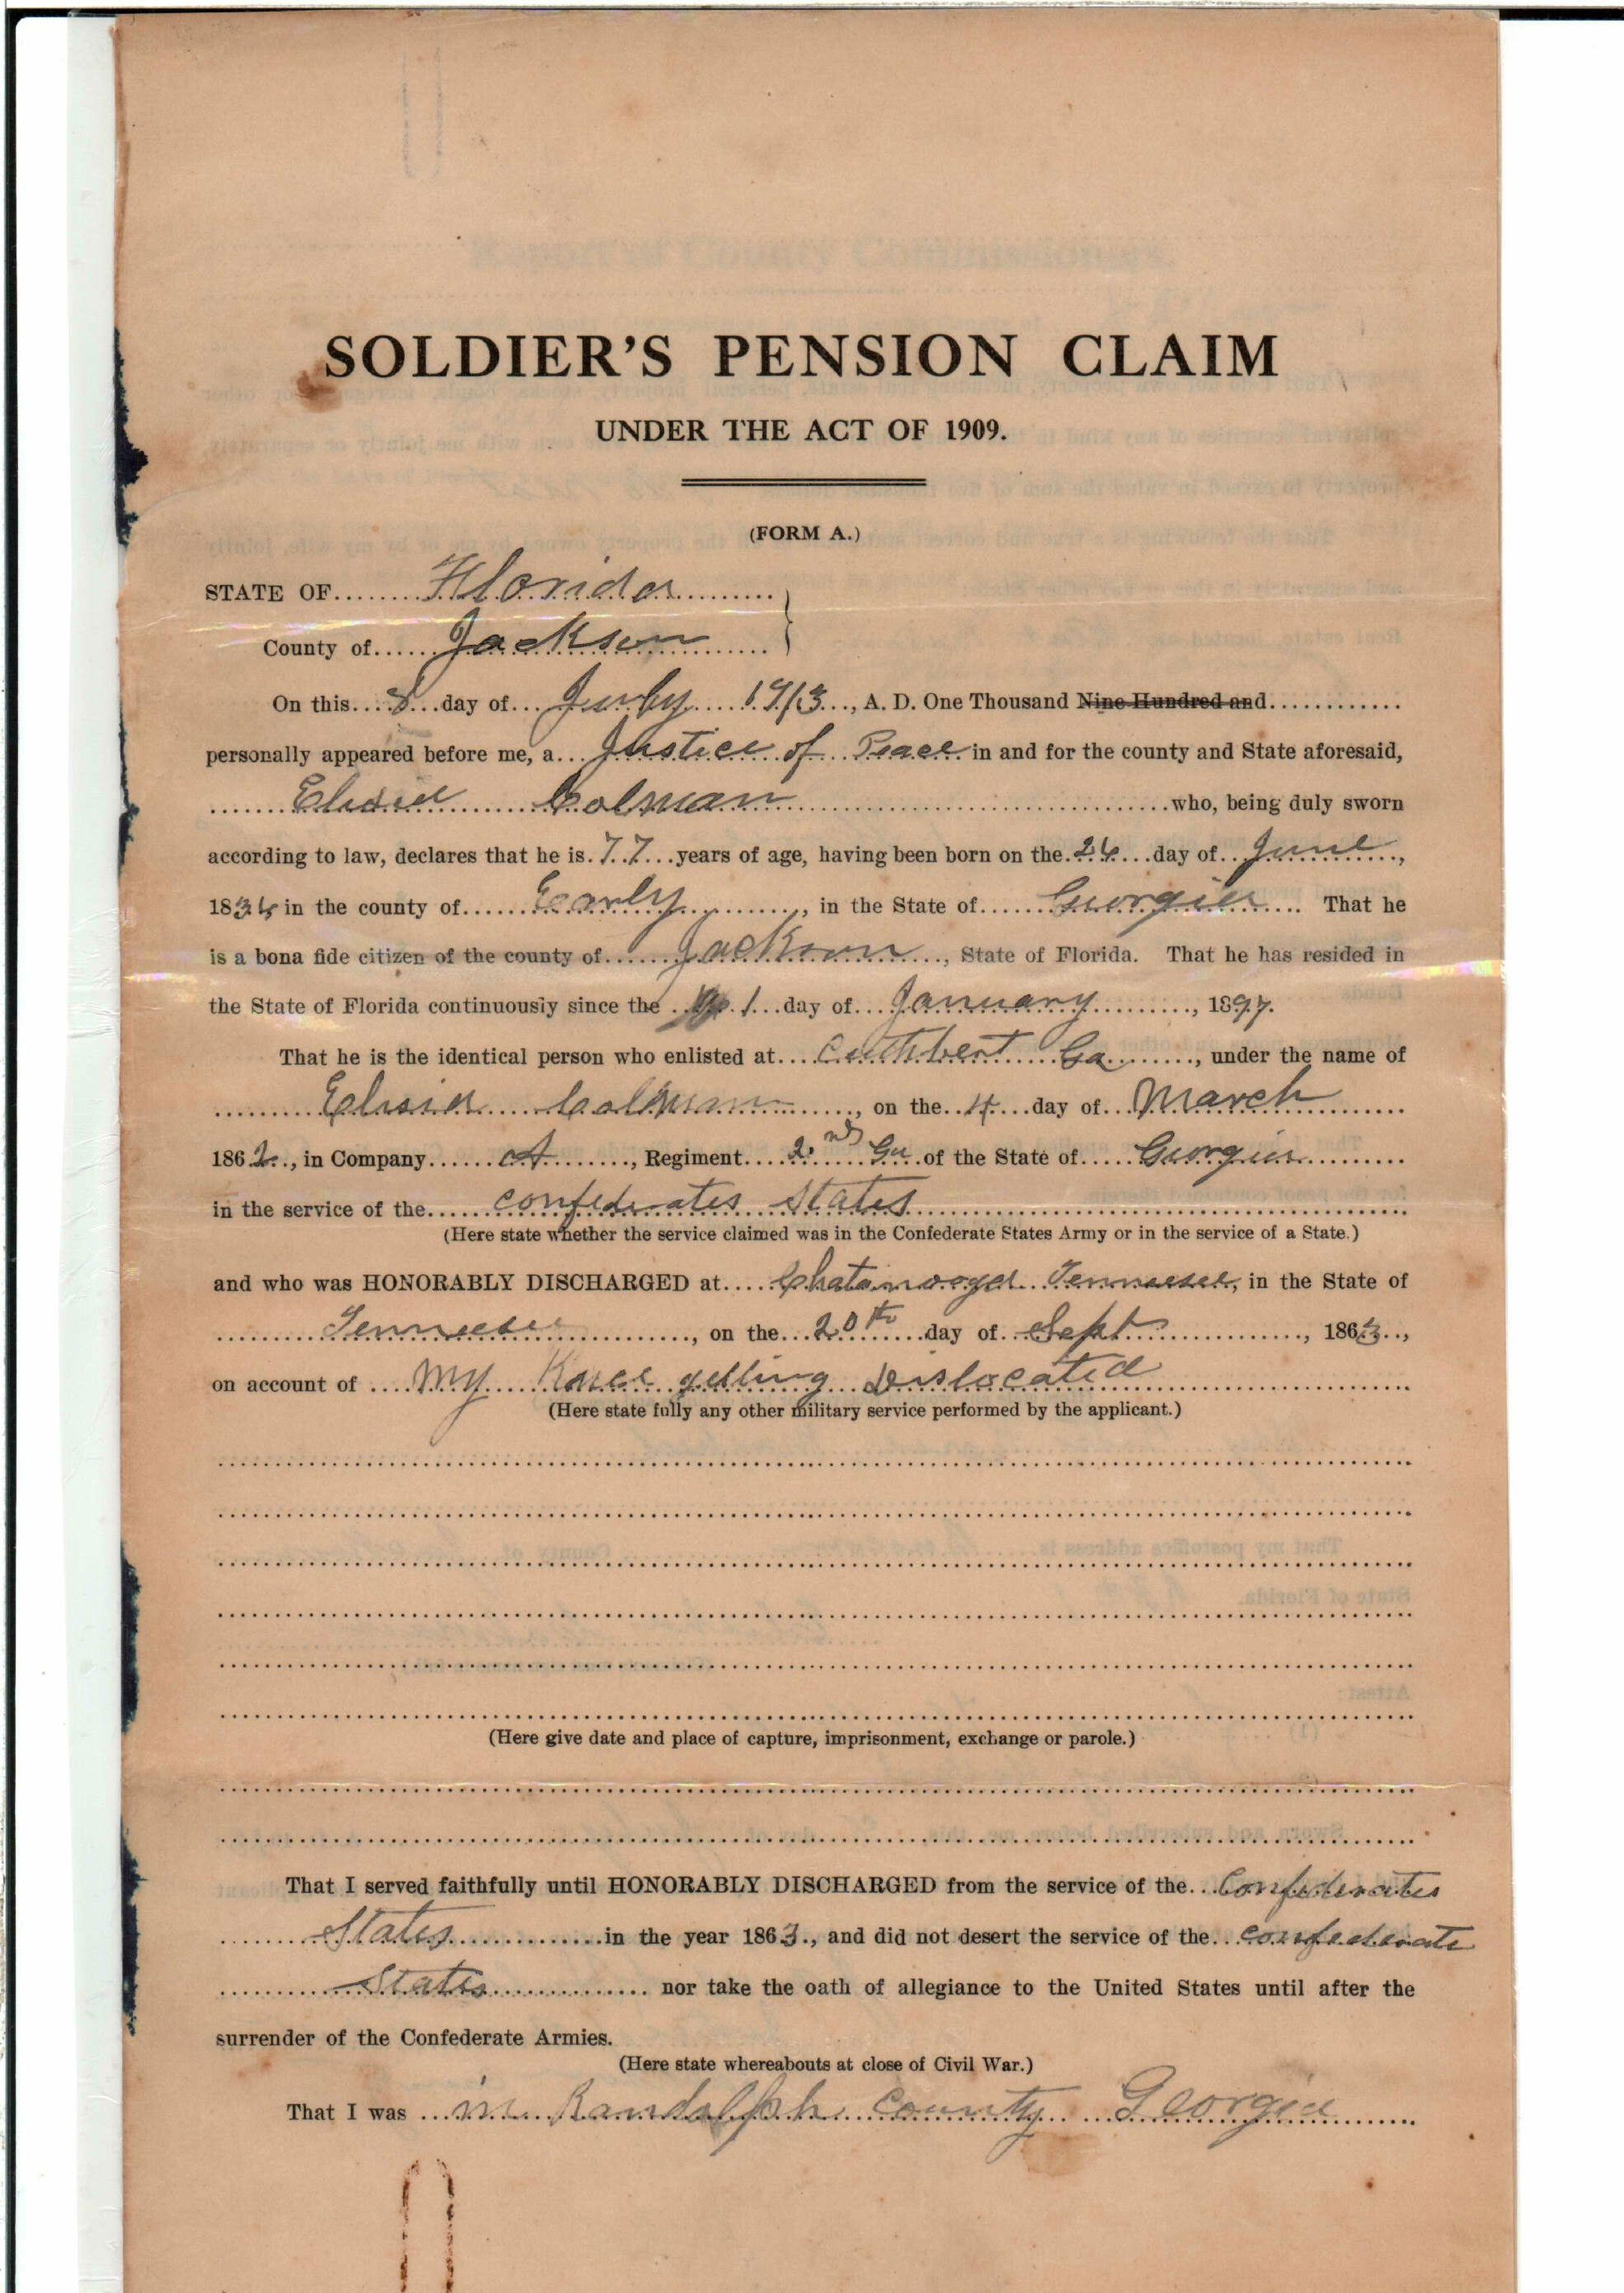 SOLDIER'S PENSION CLAIM
UNDER THE ACT OF 1909.
(FORM A.)
STATE OF Florida
County of Jackson
On this 8 day of July 1913, A. D. One Thousand Nine Hundred and
personally appeared before me, a Justice of Peace in and for the county and State aforesaid,
Colman who, being duly sworn
according to law, declares that he is 77 years of age, having been born on the 26 day of June,
1836 in the county of Early, in the State of Georgia That he
is a bona fide citizen of the county of Jackson, State of Florida. That he has resided in
the State of Florida continuously since the 1 day of January, 1897.
That he is the identical person who enlisted at Cuthbert Ga, under the name of
Colman, on the 4 day of March
1862, in Company A, Regiment 2nd Ga of the State of Georgia
in the service of the confederates States
(Here state whether the service claimed was in the Confederate States Army or in the service of a State.)
and who was HONORABLY DISCHARGED at Chatanooga Tennessee, in the State of
Tennessee, on the 20th day of Sept, 1863,
on account of my Knee getting Dislocated
(Here state fully any other military service performed by the applicant.)
(Here give date and place of capture, imprisonment, exchange or parole.)
That I served faithfully until HONORABLY DISCHARGED from the service of the Confederates
States in the year 1863, and did not desert the service of the confederate
States nor take the oath of allegiance to the United States until after the
surrender of the Confederate Armies.
(Here state whereabouts at close of Civil War.)
That I was in Randolph County Georgia